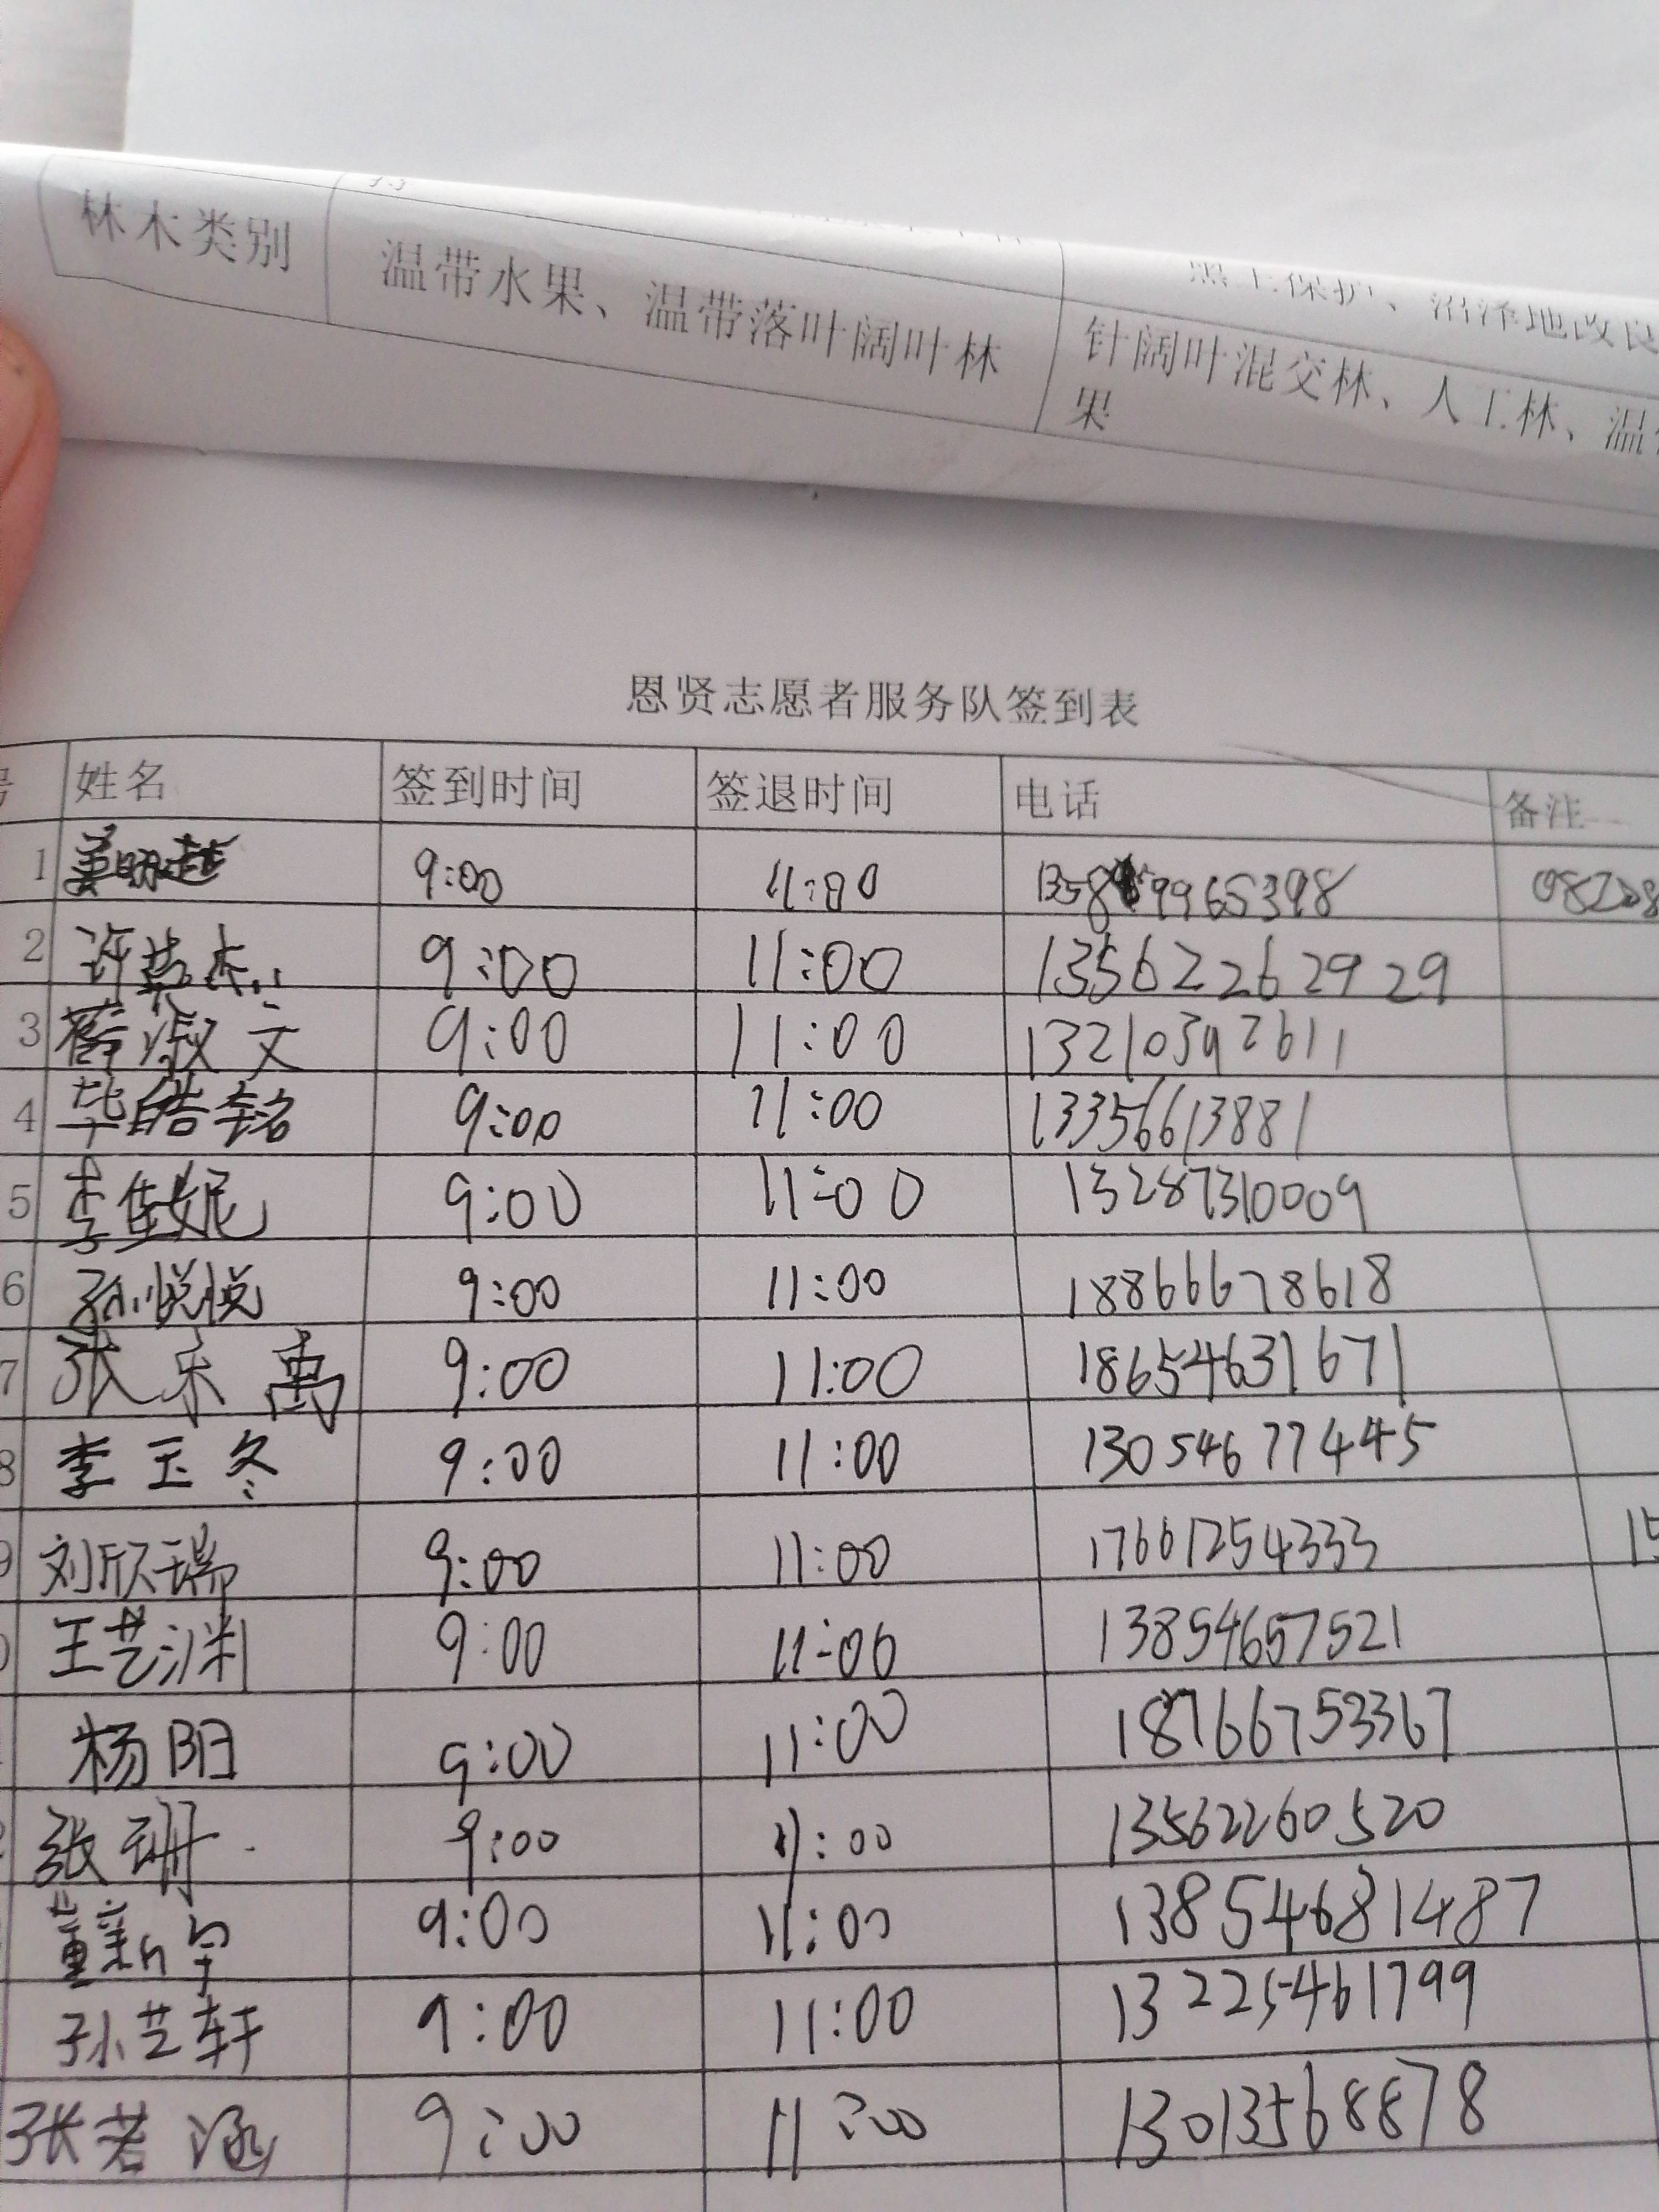 林木类别 温带水果、温带落叶阔叶林 针阔叶混交林、人工林、温
黑土保护、沼泽地改良
果
恩贤志愿者服务队签到表
号 姓名 签到时间 签退时间 电话 备注
1 姜明超 9:00 11:00
2 许 杰 9:00 11:00 13562262929
3 蔡淑文 9:00 11:00 13210392611
4 毕皓铭 9:00 11:00 13356613881
5 李佳妮 9:00 11:00 13287310009
6 孙悦悦 9:00 11:00 18866678618
7 张乐禹 9:00 11:00 18654631671
8 李玉冬 9:00 11:00 13054677445
9 刘欣瑞 9:00 11:00 17661254333 15
王艺渊 9:00 11:00 13854657521
杨阳 9:00 11:00 18766753367
张珊 9:00 11:00 13562260520
董新宇 9:00 11:00 13854681487
孙艺轩 9:00 11:00 13225461799
张若涵 9:00 11:00 13013568878